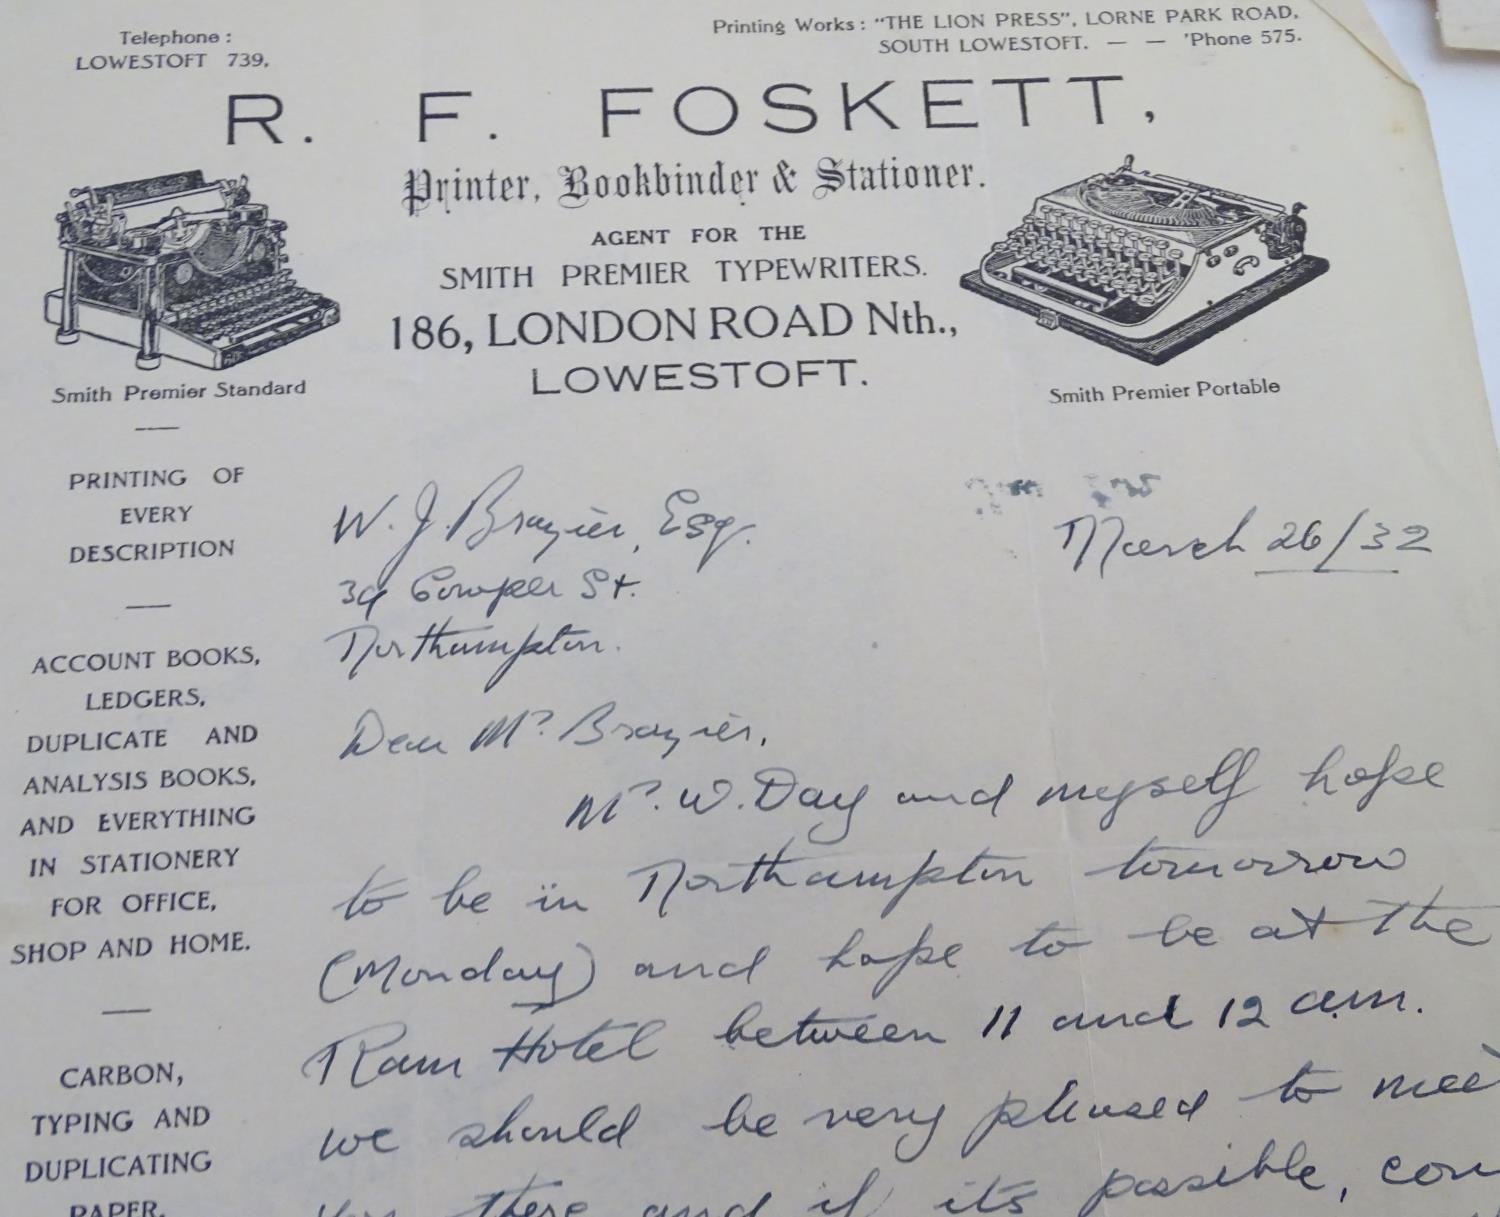 Telephone :
LOWESTOFT 739.
Printing Works : "THE LION PRESS", LORNE PARK ROAD,
SOUTH LOWESTOFT. — — 'Phone 575.
R. F. FOSKETT,
Printer, Bookbinder & Stationer.
AGENT FOR THE
SMITH PREMIER TYPEWRITERS.
186, LONDON ROAD Nth.,
LOWESTOFT.
Smith Premier Standard
Smith Premier Portable
PRINTING OF
EVERY
DESCRIPTION
ACCOUNT BOOKS,
LEDGERS,
DUPLICATE AND
ANALYSIS BOOKS,
AND EVERYTHING
IN STATIONERY
FOR OFFICE,
SHOP AND HOME.
CARBON,
TYPING AND
DUPLICATING
PAPER.
March 26/32
W. J. Brazier, Esq.
39 Cowper St.
Northampton.
Dear Mr Brazier,
Mr. W. Day and myself hope
to be in Northampton tomorrow
(Monday) and hope to be at the
Ram Hotel between 11 and 12 a.m.
we should be very pleased to meet
you there and if its possible,